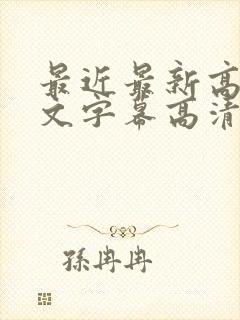 最近最新高
文字幕高清
孫冉冉